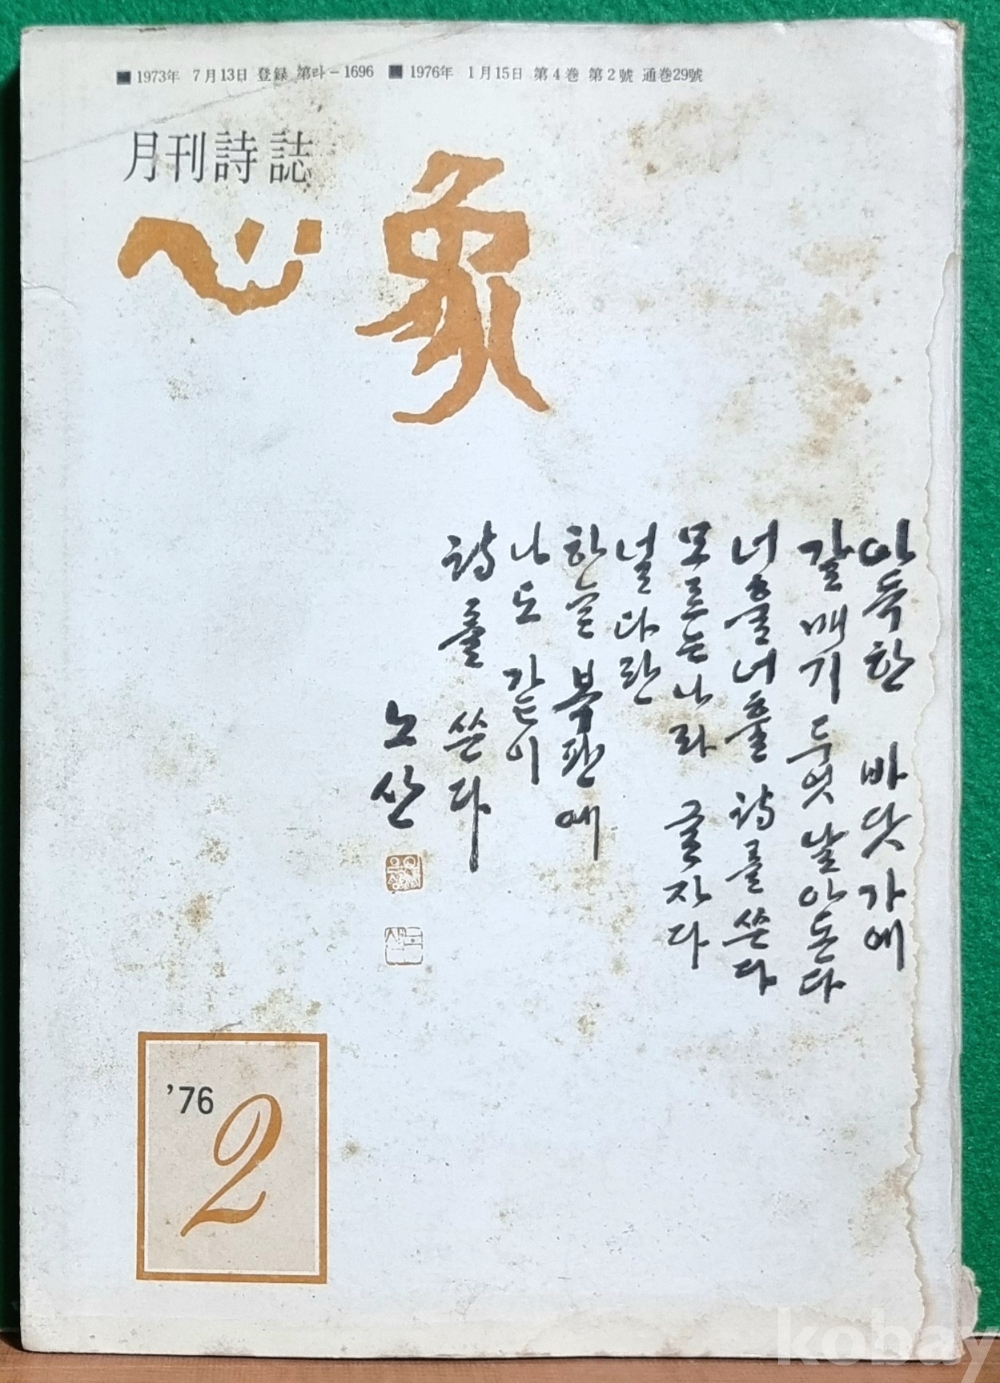 ■ 1973年 7月13日 登録 第라-1696 ■ 1976年 1月15日 第4巻 第2號 通巻29號
月刊詩誌
心象
아득한 바닷가에
갈매기 두엇 날아돈다
너훌너훌 詩를 쓴다
모르는 나라 글자다
널따란
하늘 복판에
나도 같이
詩를 쓴다
노산
'76
2
kobay